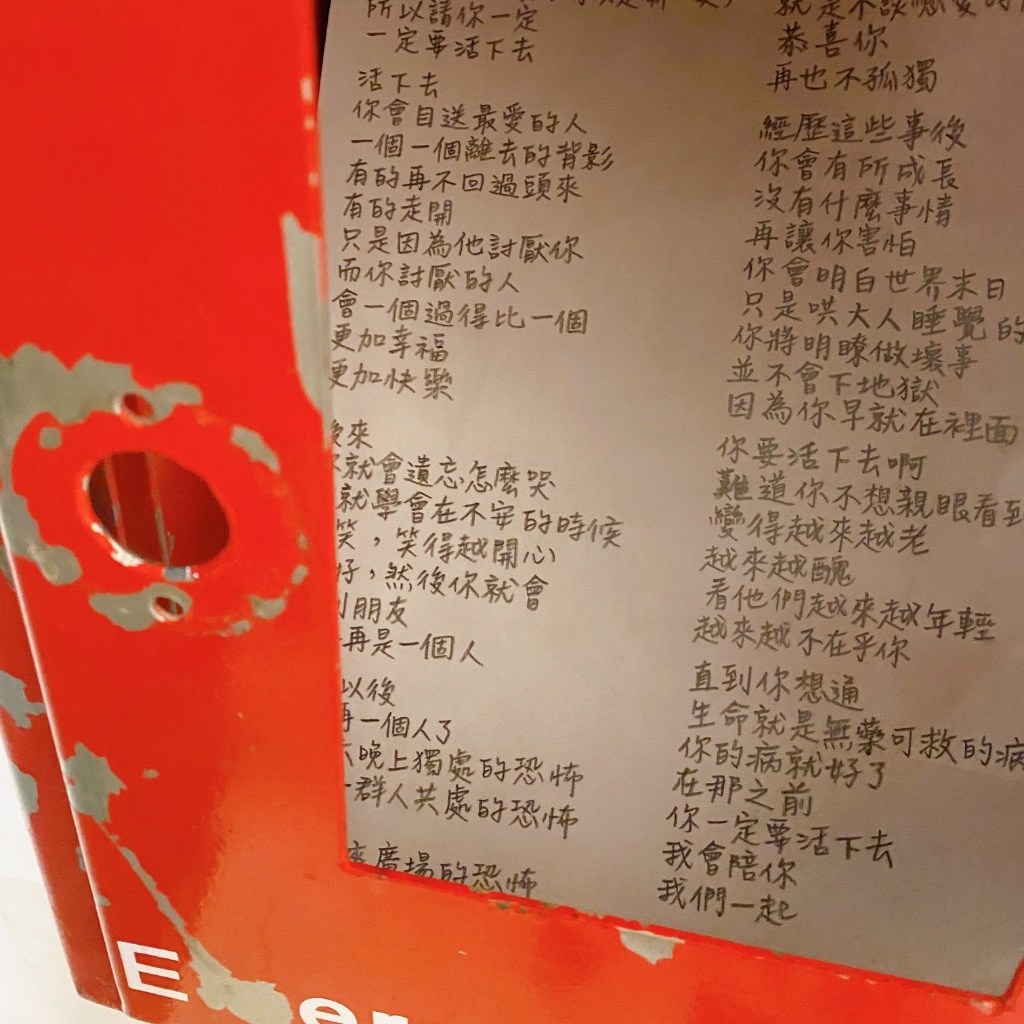 所以請你一定
一定要活下去
活下去
你會目送最愛的人
一個一個離去的背影
有的再不回過頭來
有的走開
只是因為他討厭你
而你討厭的人
會一個過得比一個
更加幸福
更加快樂
後來
就會遺忘怎麼哭
就學會在不安的時候
笑，笑得越開心
好，然後你就會
到朋友
再是一個人
以後
再一個人了
晚上獨處的恐怖
群人共處的恐怖
廣場的恐怖
就是不談戀愛的
恭喜你
再也不孤獨
經歷這些事後
你會有所成長
沒有什麼事情
再讓你害怕
你會明白世界末日
只是哄大人睡覺的
你將明瞭做壞事
並不會下地獄
因為你早就在裡面
你要活下去啊
難道你不想親眼看到
變得越來越老
越來越醜
看他們越來越年輕
越來越不在乎你
直到你想通
生命就是無藥可救的病
你的病就好了
在那之前
你一定要活下去
我會陪你
我們一起
E er